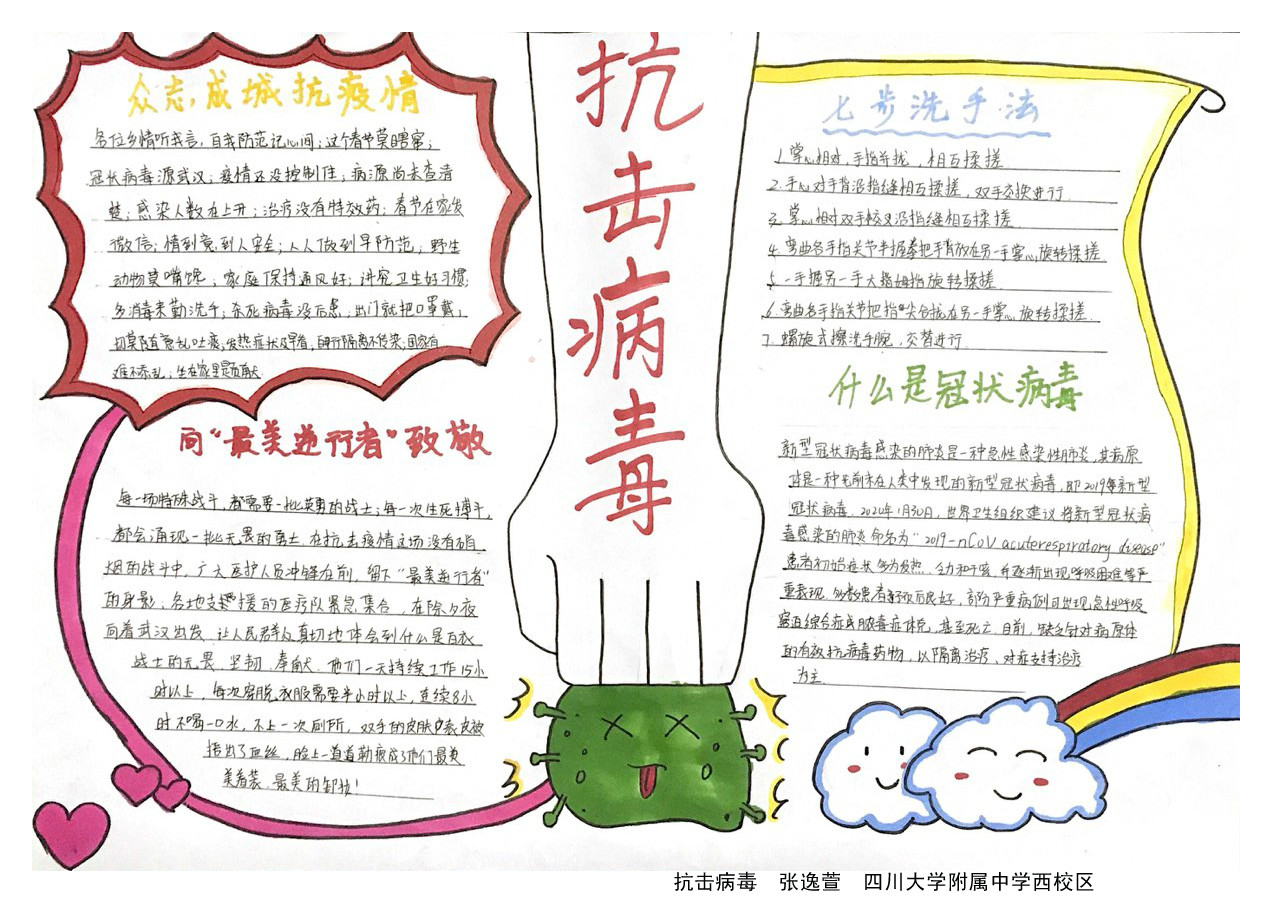 众志成城抗疫情
各位乡情听我言,自我防范记心间;这个春节莫瞎窜;
冠状病毒源武汉;疫情还没控制住;病源尚未查清
楚;感染人数在上升;治疗没有特效药;春节在家发
微信;情到意到人安全;人人做到早防范;野生
动物莫嘴馋;家庭保持通风好;讲究卫生好习惯;
多消毒来勤洗手,杀死病毒没后患;出门就把口罩戴;
切莫随意乱吐痰;发热症状及早看,自行隔离不传染;国家有
难不添乱;坐在家里
向“最美逆行者”致敬
每一场特殊战斗,都需要一批英勇的战士;每一次生死搏斗,
都会涌现一批无畏的勇士。在抗击疫情这场没有硝
烟的战斗中,广大医护人员冲锋在前,留下“最美逆行者”
的身影;各地支援的医疗队紧急集合,在除夕夜
向着武汉出发,让人民群众真切地体会到什么是白衣
战士的无畏、坚韧、奉献。他们一天持续工作15小
时以上,每次穿脱衣服需要半小时以上,连续8小
时不喝一口水,不上一次厕所,双手的皮肤
捂出了血丝,脸上一道道勒痕成了他们最美
着装、最美的
抗击病毒
七步洗手法
1.掌心相对,手指并拢,相互揉搓
2.手心对手背沿指缝相互揉搓,双手交换进行
3.掌心相对双手交叉沿指缝相互揉搓
4.弯曲各手指关节半握拳把手背放在另一手掌心旋转揉搓
5.一手握另一手大拇姆指旋转揉搓
6.弯曲各手指关节把指尖合拢在另一手掌心旋转揉搓
7.螺旋式擦洗手腕,交替进行
什么是冠状病毒
新型冠状病毒感染的肺炎是一种急性感染性肺炎,其病原
体是一种先前未在人类中发现的新型冠状病毒,即2019年新型
冠状病毒。2020年1月30日,世界卫生组织建议将新型冠状病
毒感染的肺炎命名为“2019-nCoV acuterespiratory disease”
患者初始症状多为发热、乏力和干咳,并逐渐出现呼吸困难等严
重表现。多数患者预后良好,部分严重病例可出现急性呼吸
窘迫综合症或脓毒症休克,甚至死亡。目前,缺乏针对病原体
的有效抗病毒药物,以隔离治疗、对症支持治疗
为主.
抗击病毒 张逸萱 四川大学附属中学西校区